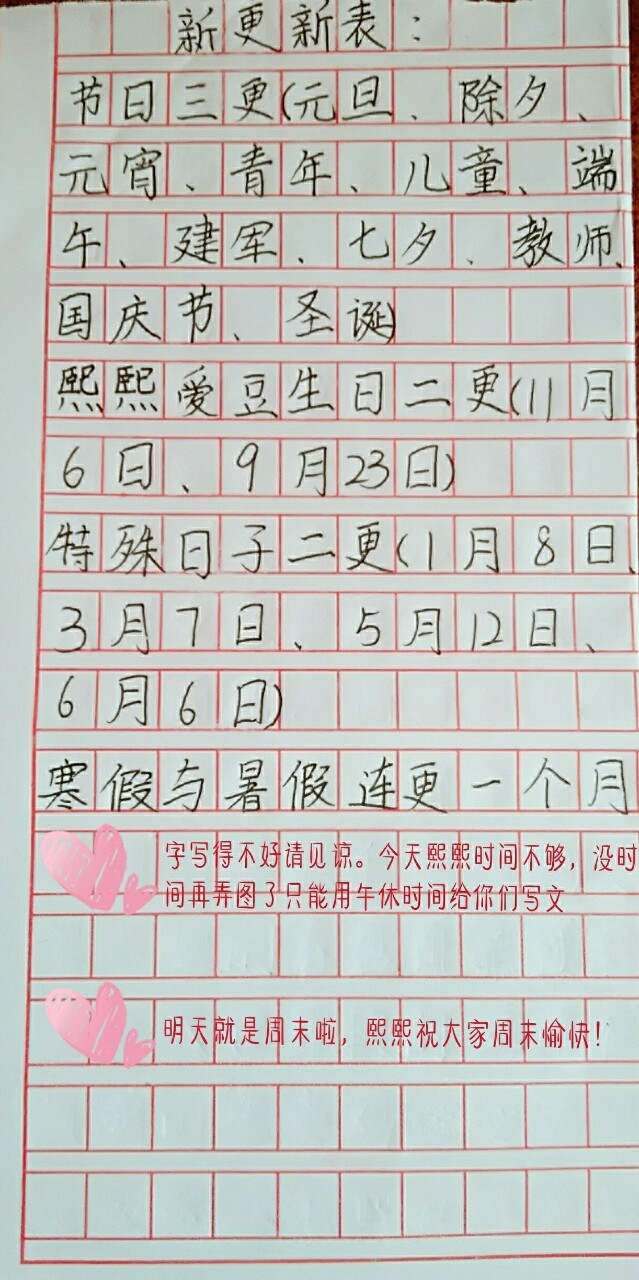 新更新表：
节日三更(元旦、除夕、
元宵、青年、儿童、端
午、建军、七夕、教师、
国庆节、圣诞)
熙熙爱豆生日二更(11月
6日、9月23日)
特殊日子二更(1月8日、
3月7日、5月12日、
6月6日)
寒假与暑假连更一个月
字写得不好请见谅。今天熙熙时间不够，没时
间再弄图了只能用午休时间给你们写文
明天就是周末啦，熙熙祝大家周末愉快！